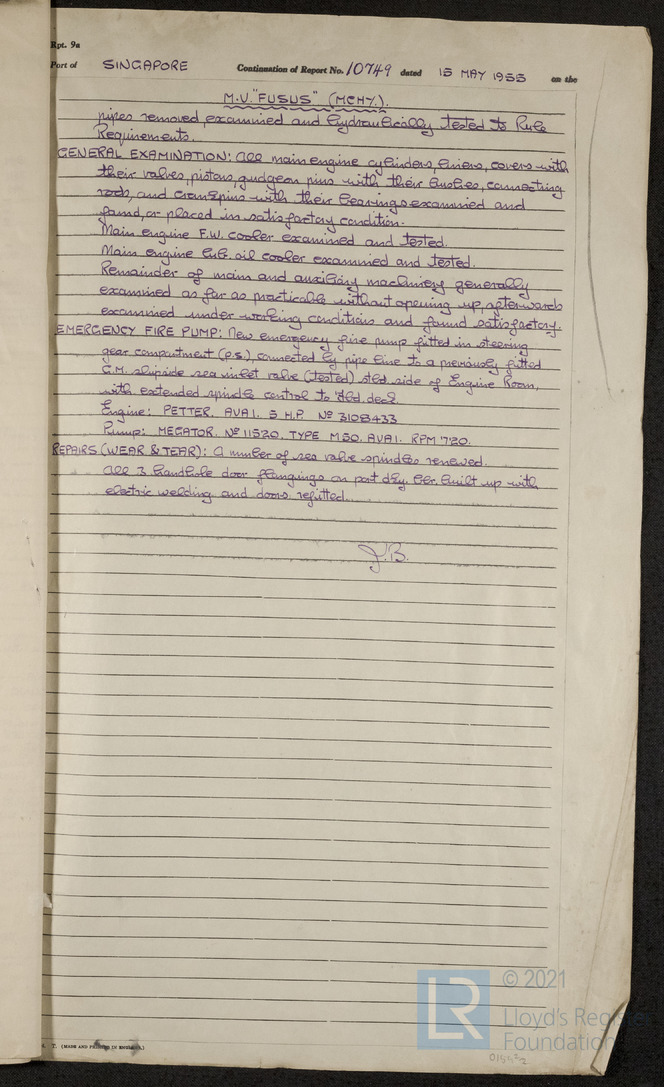 Rpt. 9a
Port of SINGAPORE Continuation of Report No. 10749 dated 15 MAY 1955 on the
M.V. "FUSUS" (MCHY.).
pipes removed, examined and hydraulically tested to Rule
Requirements.
GENERAL EXAMINATION: All main engine cylinders, liners, covers with
their valves, pistons, gudgeon pins with their bushes, connecting
rods, and crankpins with their bearings examined and
found, or placed in satisfactory condition.
Main engine F.W. cooler examined and tested.
Main engine lub. oil cooler examined and tested.
Remainder of main and auxiliary machinery generally
examined as far as practicable without opening up, afterwards
examined under working conditions and found satisfactory.
EMERGENCY FIRE PUMP: New emergency fire pump fitted in steering
gear compartment (p.s.), connected by pipe line to a previously fitted
G.M. shipside sea inlet valve (tested) stbd. side of Engine Room,
with extended spindle control to deck
Engine: PETTER. AVA1. 5 H.P. Nº 3108433
Pump: MEGATOR. Nº 11520. TYPE M50. AVA1. RPM 720.
REPAIRS (WEAR & TEAR): A number of sea valve spindles renewed.
All 3 handhole door flangings on port dky. blr. built up with
electric welding and doors refitted.
J.B.
T. (MADE AND PRINTED IN ENGLAND.)
LR
© 2021
Lloyd's Register
Foundation